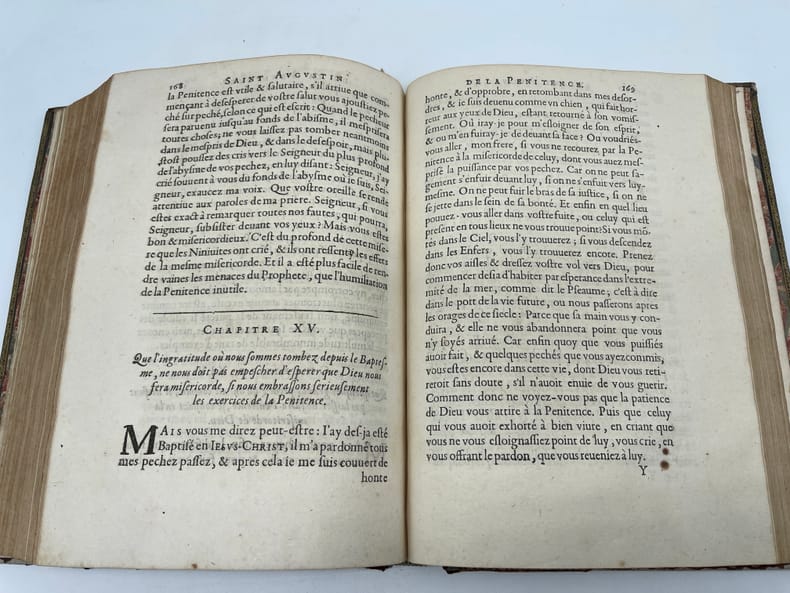 168 SAINT AVGVSTIN
la Penitence est vtile & salutaire, s'il arriue que com-
mençant à desesperer de vostre salut vous ajoustiez pe-
ché sur peché, selon ce qui est escrit: Quand le pecheur
sera paruenu iusqu'au fonds de l'abisme, il mesprisera
toutes choses; ne vous laissez pas tomber neantmoins
dans le mespris de Dieu, & dans le desespoir, mais plu-
stost poussez des cris vers le Seigneur du plus profond
de l'abysme de vos pechez, en luy disant: Seigneur, j'ay
crié souuent à vous du fonds de l'abysme où ie suis, Sei-
gneur, exaucez ma voix. Que vostre oreille se rende
attentiue aux paroles de ma prière. Seigneur, si vous
estes exact à remarquer toutes nos fautes, qui pourra,
Seigneur, subsister deuant vos yeux? Mais vous estes
bon & misericordieux. C'est du profond de cette mise-
re que les Niniuites ont crié, & ils ont ressenty les effets
de la mesme misericorde. Et il a esté plus facile de ren-
dre vaines les menaces du Prophete, que l'humiliation
de la Penitence inutile.
CHAPITRE XV.
Que l'ingratitude où nous sommes tombez depuis le Baptes-
me, ne nous doit pas empescher d'esperer que Dieu nous
fera misericorde, si nous embrassons serieusement
les exercices de la Penitence.
MAIS vous me direz peut-estre: I'ay des-ja esté
Baptisé en IESVS-CHRIST, il m'a pardonné tous
mes pechez passez, & apres cela ie me suis couuert de
honte
DE LA PENITENCE. 169
honte, & d'opprobre, en retombant dans mes desor-
dres, & ie suis deuenu comme vn chien, qui fait hor-
reur aux yeux de Dieu, estant retourné à son vomis-
sement. Où iray-je pour m'esloigner de son esprit,
& où m'en fuiray-je de deuant sa face? Où voudriés-
vous aller, mon frere, si vous ne recourez par la Pe-
nitence à la misericorde de celuy, dont vous auez mes-
prisé la puissance par vos pechez. Car on ne peut sa-
gement s'enfuir deuant luy, si on ne s'enfuit vers luy-
mesme. On ne peut fuir le bras de sa iustice, si on ne
se jette dans le sein de sa bonté. Et enfin en quel lieu
pouuez-vous aller dans vostre fuite, ou celuy qui est
present en tous lieux ne vous trouue point? Si vous mō-
tés dans le Ciel, vous l'y trouuerez; si vous descendez
dans les Enfers, vous l'y trouuerez encore. Prenez
donc vos aisles & dressez vostre vol vers Dieu, pour
commencer desia d'habiter par esperance dans l'extre-
mité de la mer, comme dit le Pseaume; c'est à dire
dans le port de la vie future, ou nous passerons apres
les orages de ce siecle: Parce que sa main vous y con-
duira, & elle ne vous abandonnera point que vous
n'y soyés arriué. Car enfin quoy que vous puissiés
auoir fait, & quelques pechés que vous ayez commis,
vous estes encore dans cette vie, dont Dieu vous reti-
reroit sans doute, s'il n'auoit enuie de vous guerir.
Comment donc ne voyez-vous pas que la patience
de Dieu vous attire à la Penitence. Puis que celuy
qui vous auoit exhorté à bien viure, en criant que
vous ne vous esloignassiez point de luy, vous crie, en
vous offrant le pardon, que vous reueniez à luy.
Y